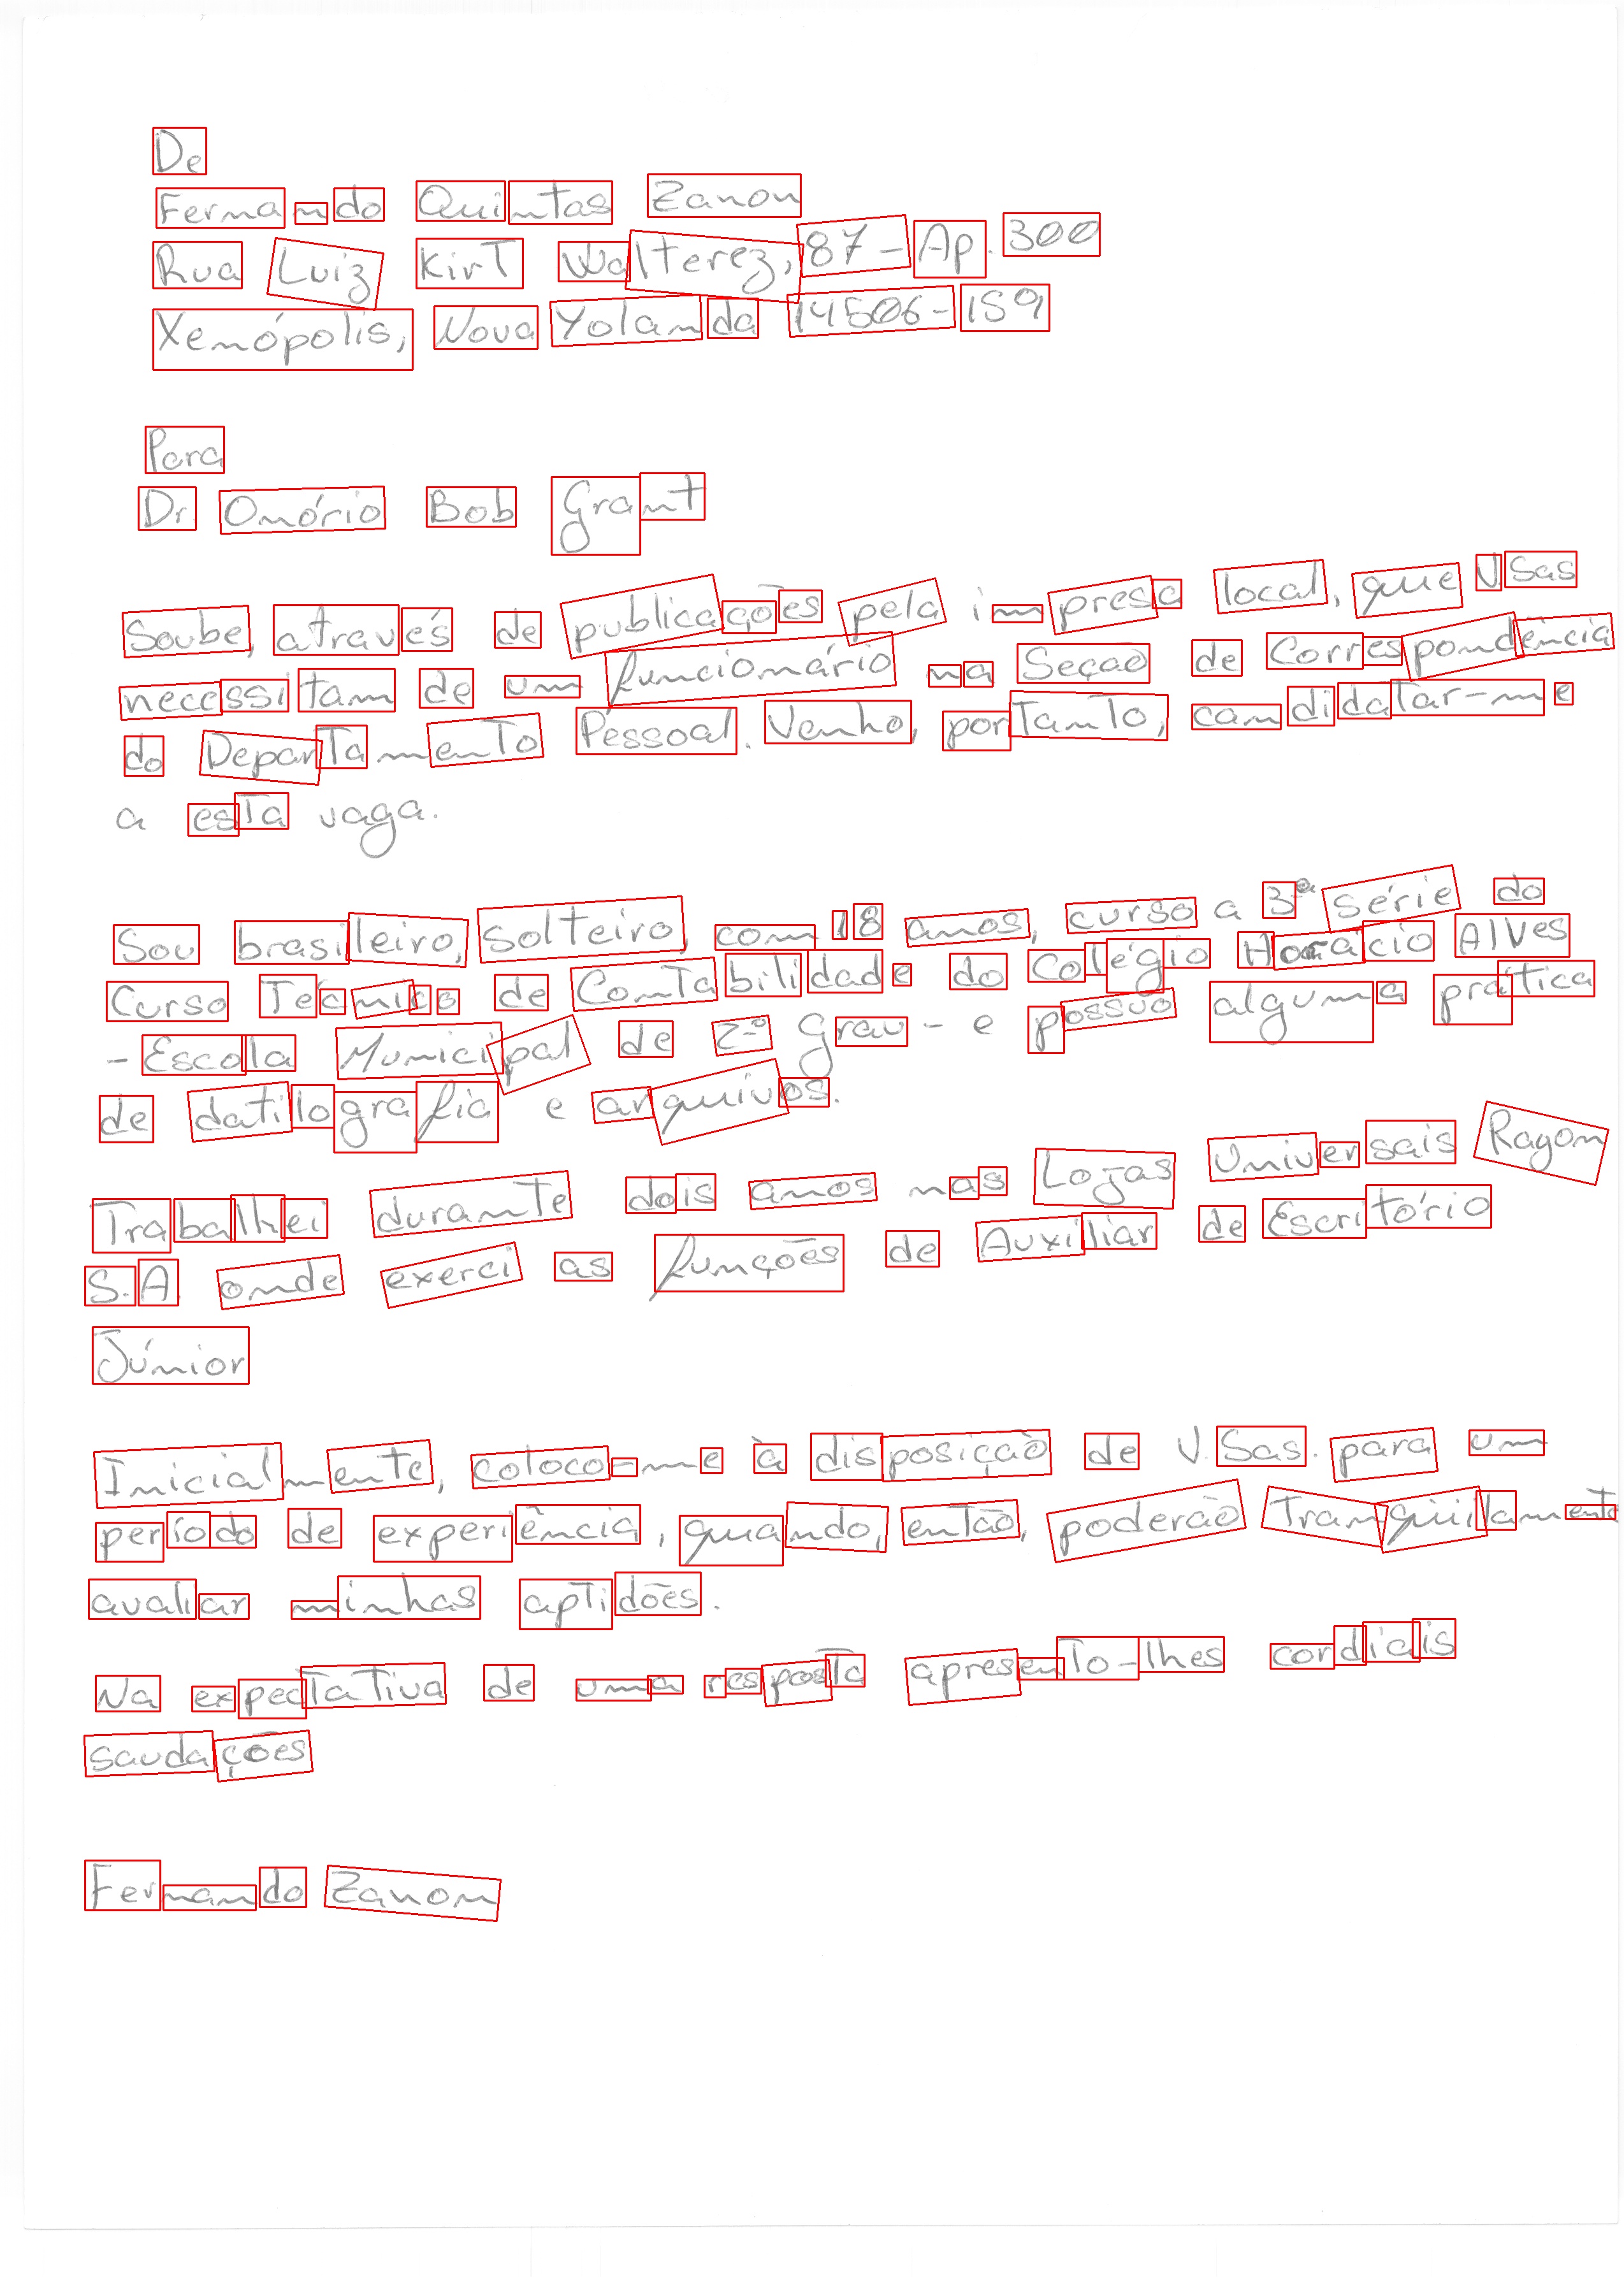 De
Fernando Quintas Zanon
Rua Luiz Kirt Walterez, 87 - Ap. 300
Xenópolis, Nova Yolanda 14506-159
Para
Dr Onório Bob Grant
Soube, através de publicações pela impresa local, que V.Sas
necessitam de um funcionário na Seção de Correspondência
do Departamento Pessoal. Venho, portanto, candidatar-me
a esta vaga.
Sou brasileiro, solteiro, com 18 anos, curso a 3ª série do
Curso Técnico de Contabilidade do Colégio Horácio Alves
- Escola Municipal de 2º Grau - e possuo alguma prática
de datilografia e arquivos.
Trabalhei durante dois anos nas Lojas Universais Ragon
S.A onde exerci as funções de Auxiliar de Escritório
Júnior
Inicialmente, coloco-me à disposição de V.Sas. para um
período de experiência, quando, então, poderão tranqüilamente
avaliar minhas aptidões.
Na expectativa de uma resposta apresento-lhes cordiais
saudações
Fernando Zanon